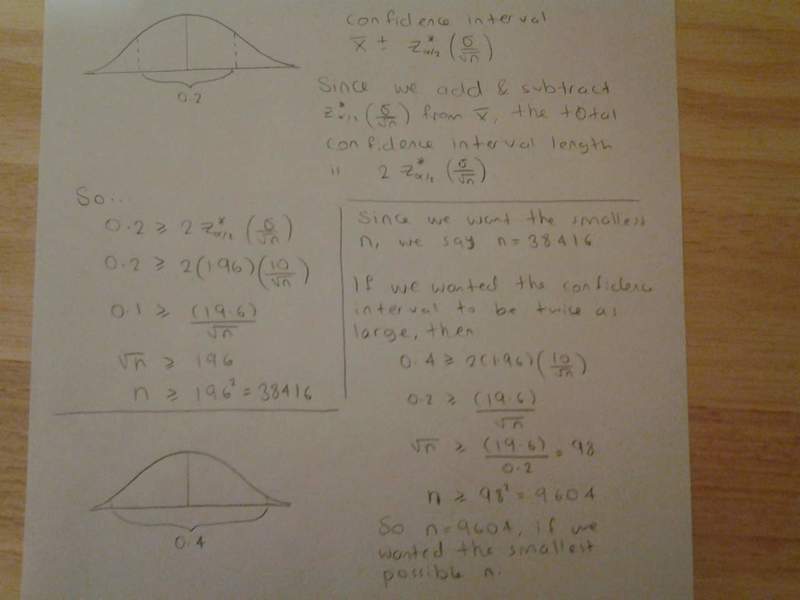 0.2
confidence interval
x̄ ± z*α/2 (σ/√n)
Since we add & subtract
z*α/2 (σ/√n) from x̄, the total
confidence interval length
is 2 z*α/2 (σ/√n)
So...
0.2 ≥ 2 z*α/2 (σ/√n)
0.2 ≥ 2(1.96)(10/√n)
0.1 ≥ (19.6)/√n
√n ≥ 196
n ≥ 196² = 38416
Since we want the smallest
n, we say n = 38416
If we wanted the confidence
interval to be twice as
large, then
0.4 ≥ 2(1.96)(10/√n)
0.2 ≥ (19.6)/√n
√n ≥ (19.6)/0.2 = 98
n ≥ 98² = 9604
So n = 9604, if we
wanted the smallest
possible n.
0.4